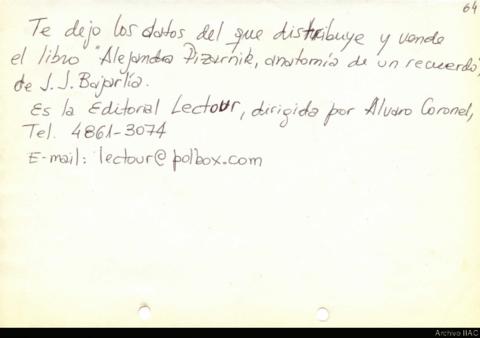 64
Te dejo los datos del que distribuye y vende
el libro "Alejandra Pizarnik, anatomía de un recuerdo",
de J.J. Bajarlía.
Es la Editorial Lectour, dirigida por Alvaro Coronel,
Tel. 4861-3074
E-mail: lectour@polbox.com
Archivo IIAC